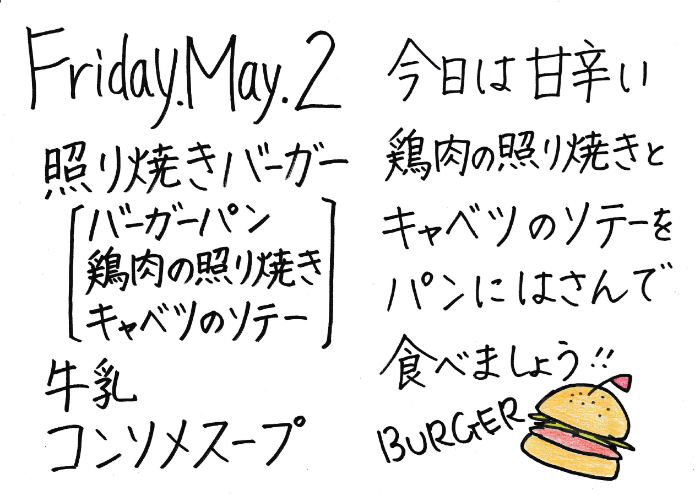 Friday.May.2
照り焼きバーガー
[バーガーパン
鶏肉の照り焼き
キャベツのソテー]
牛乳
コンソメスープ
今日は甘辛い
鶏肉の照り焼きと
キャベツのソテーを
パンにはさんで
食べましょう!!
BURGER